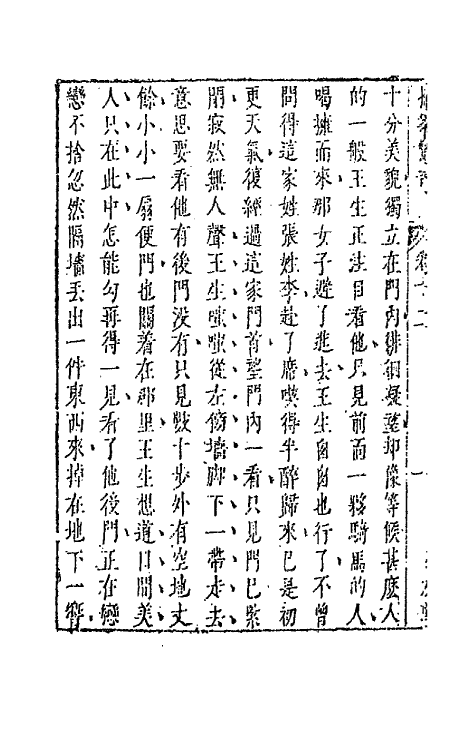 十分美貌獨立在門內徘徊凝望却像等候甚麼人
的一般王生正注目看他只見前面一夥騎馬的人
喝擁而來那女子避了進去王生匆匆也行了不曾
問得這家姓張姓李赴了席喫得半醉歸來已是初
更天氣復經過這家門首望門內一看只見門已緊
閉寂然無人聲王生嗤嗤從左傍墻脚下一帶走去
意思要看他有後門沒有只見數十步外有空地丈
餘小小一扇便門也關着在那里王生想道日間美
人只在此中怎能勾再得一見看了他後門正在戀
戀不捨忽然隔墻丟出一件東西來掉在地下一響